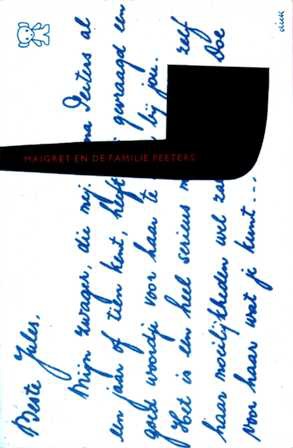 MAIGRET EN DE FAMILIE PEETERS
Beste Jules,
Mijn zwager, die mij na Peeters al
een jaar of tien kent, heeft gevraagd een
goed woordje voor haar te bij jou.
Het is een heel serieus m zelf
haar moeilijkheden wel za Doe
voor haar wat je kunt...
dick